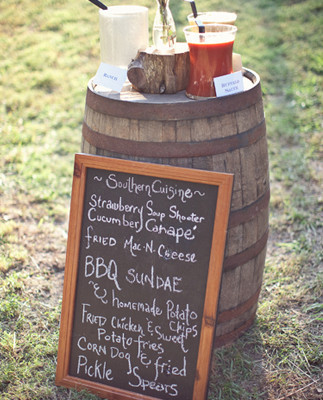 ~ Southern Cuisine ~
Strawberry Soup Shooter
Cucumber Canapé
fRiED Mac-N-Cheese
BBQ SUNDAE
& homemade Potato
Chips
FRiED Chicken & Sweet
Potato fries
CORN DOG & fried
Pickle Spears